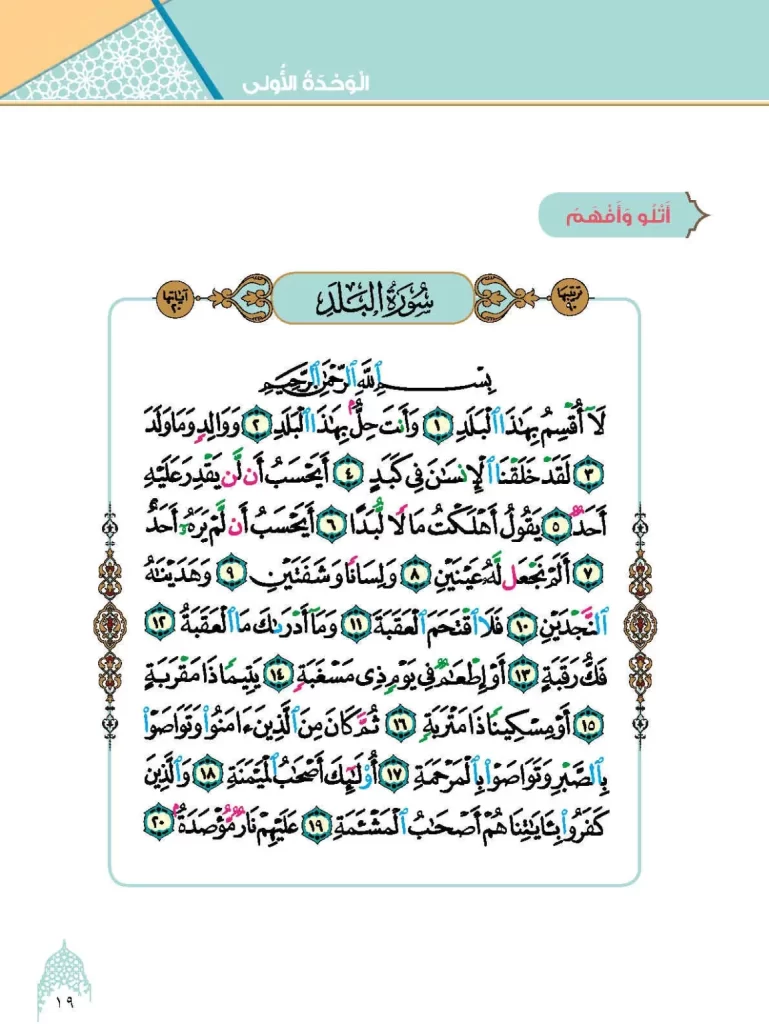 الْوَحْدَةُ الْأُولَى
أَتْلُو وَأَفْهَمُ
ترتيبها ٩٠ سُورَةُ الْبَلَدِ آياتها ٢٠
بِسْمِ ٱللَّهِ ٱلرَّحْمَٰنِ ٱلرَّحِيمِ
لَآ أُقْسِمُ بِهَٰذَا ٱلْبَلَدِ ١ وَأَنتَ حِلٌّۢ بِهَٰذَا ٱلْبَلَدِ ٢ وَوَالِدٍ وَمَا وَلَدَ
٣ لَقَدْ خَلَقْنَا ٱلْإِنسَٰنَ فِى كَبَدٍ ٤ أَيَحْسَبُ أَن لَّن يَقْدِرَ عَلَيْهِ
أَحَدٌ ٥ يَقُولُ أَهْلَكْتُ مَالًا لُّبَدًا ٦ أَيَحْسَبُ أَن لَّمْ يَرَهُۥٓ أَحَدٌ
٧ أَلَمْ نَجْعَل لَّهُۥ عَيْنَيْنِ ٨ وَلِسَانًا وَشَفَتَيْنِ ٩ وَهَدَيْنَٰهُ
ٱلنَّجْدَيْنِ ١٠ فَلَا ٱقْتَحَمَ ٱلْعَقَبَةَ ١١ وَمَآ أَدْرَىٰكَ مَا ٱلْعَقَبَةُ ١٢
فَكُّ رَقَبَةٍ ١٣ أَوْ إِطْعَٰمٌ فِى يَوْمٍ ذِى مَسْغَبَةٍ ١٤ يَتِيمًا ذَا مَقْرَبَةٍ
١٥ أَوْ مِسْكِينًا ذَا مَتْرَبَةٍ ١٦ ثُمَّ كَانَ مِنَ ٱلَّذِينَ ءَامَنُوا۟ وَتَوَاصَوْا۟
بِٱلصَّبْرِ وَتَوَاصَوْا۟ بِٱلْمَرْحَمَةِ ١٧ أُو۟لَٰٓئِكَ أَصْحَٰبُ ٱلْمَيْمَنَةِ ١٨ وَٱلَّذِينَ
كَفَرُوا۟ بِـَٔايَٰتِنَا هُمْ أَصْحَٰبُ ٱلْمَشْـَٔمَةِ ١٩ عَلَيْهِمْ نَارٌ مُّؤْصَدَةٌۢ ٢٠
١٩